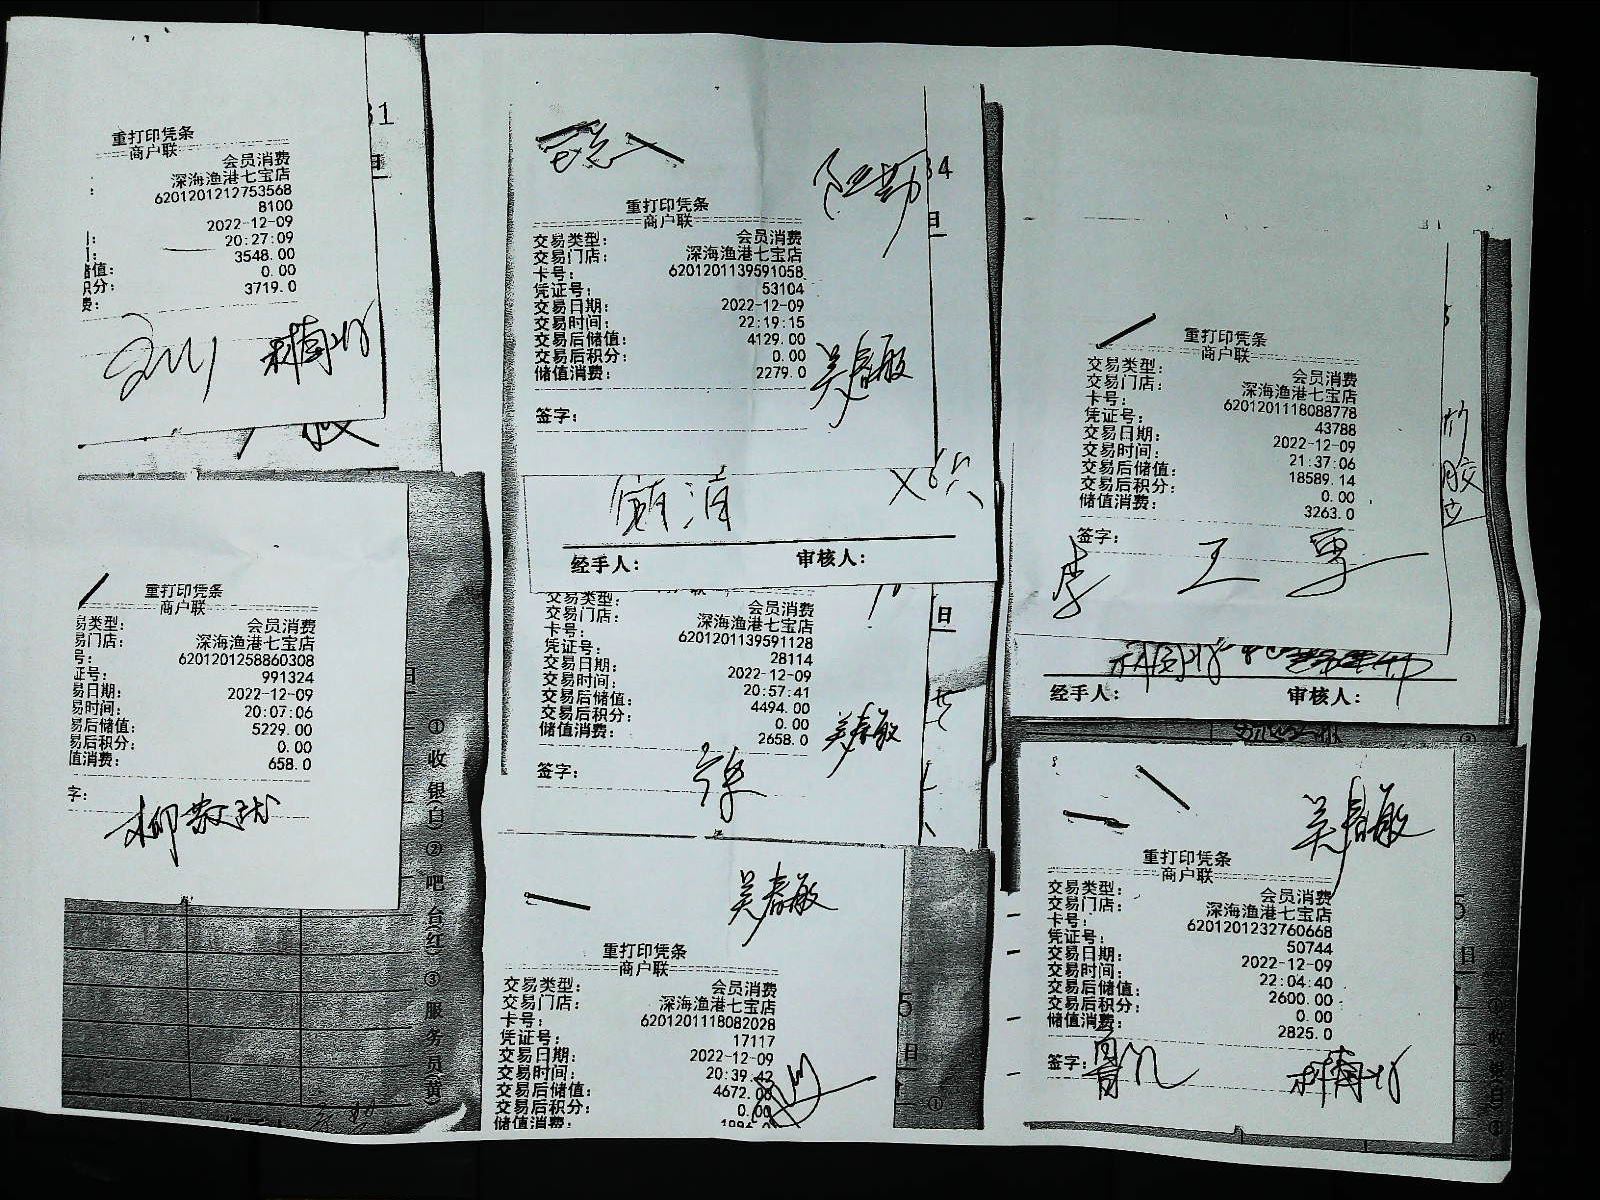 重打印凭条
商户联
会员消费
深海渔港七宝店
6201201212753568
8100
2022-12-09
20:27:09
3548.00
储值: 0.00
积分: 3719.0
费:
林南

重打印凭条
商户联
易类型: 会员消费
易门店: 深海渔港七宝店
号: 6201201258860308
证号: 991324
易日期: 2022-12-09
易时间: 20:07:06
易后储值: 5229.00
易后积分: 0.00
值消费: 658.0
字:
①收银(白)②吧台(红)③服务员(黄)

34
日
重打印凭条
商户联
交易类型: 会员消费
交易门店: 深海渔港七宝店
卡号: 6201201139591058
凭证号: 53104
交易日期: 2022-12-09
交易时间: 22:19:15
交易后储值: 4129.00
交易后积分: 0.00
储值消费: 2279.0
吴春敏
签字:
经手人: 审核人:
交易类型: 会员消费
交易门店: 深海渔港七宝店
卡号: 6201201139591128
凭证号: 28114
交易日期: 2022-12-09
交易时间: 20:57:41
交易后储值: 4494.00
交易后积分: 0.00
储值消费: 2658.0
吴春敏
签字: 徐
日

吴春敏
重打印凭条
商户联
交易类型: 会员消费
交易门店: 深海渔港七宝店
卡号: 6201201118082028
凭证号: 17117
交易日期: 2022-12-09
交易时间: 20:39:42
交易后储值: 4672.00
交易后积分: 0.00
储值消费:

重打印凭条
商户联
交易类型: 会员消费
交易门店: 深海渔港七宝店
卡号: 6201201118088778
凭证号: 43788
交易日期: 2022-12-09
交易时间: 21:37:06
交易后储值: 18589.14
交易后积分: 0.00
储值消费: 3263.0
签字:
李 王 军
经手人: 审核人:

吴春敏
重打印凭条
商户联
交易类型: 会员消费
交易门店: 深海渔港七宝店
卡号: 6201201232760668
凭证号: 50744
交易日期: 2022-12-09
交易时间: 22:04:40
交易后储值: 2600.00
交易后积分: 0.00
储值消费: 2825.0
签字: